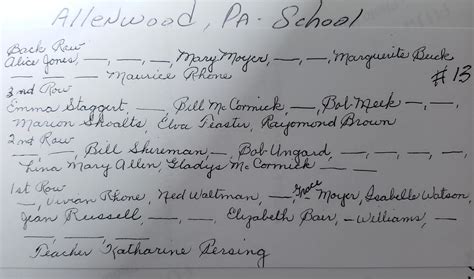 Allenwood, PA. School
Back Row
Alice Jones, —, —, —, Mary Moyer, —, —, Marguerite Buck
— — — Maurice Rhone
#13
3nd Row
Emma Staggert, —, Bill McCormick —, Bob Meek —, —,
Marion Shoalts, Elva Feaster, Raymond Brown
2nd Row
—, —, Bill Shireman — Bob Ungard, — — —,
— Lina Mary Allen, Gladys McCormick — —
1st Row
—, Vivian Rhone, Ned Waltman, — Grace Moyer, Isabelle Watson,
Jean Russell, —, — — Elizabeth Baer, — Williams, —
— — — — — —
Teacher Katharine Persing